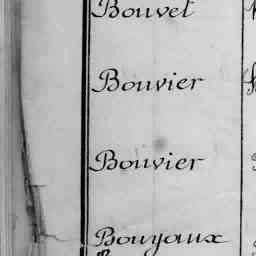 Bouvet
Bouvier
Bouvier
Bouyoux